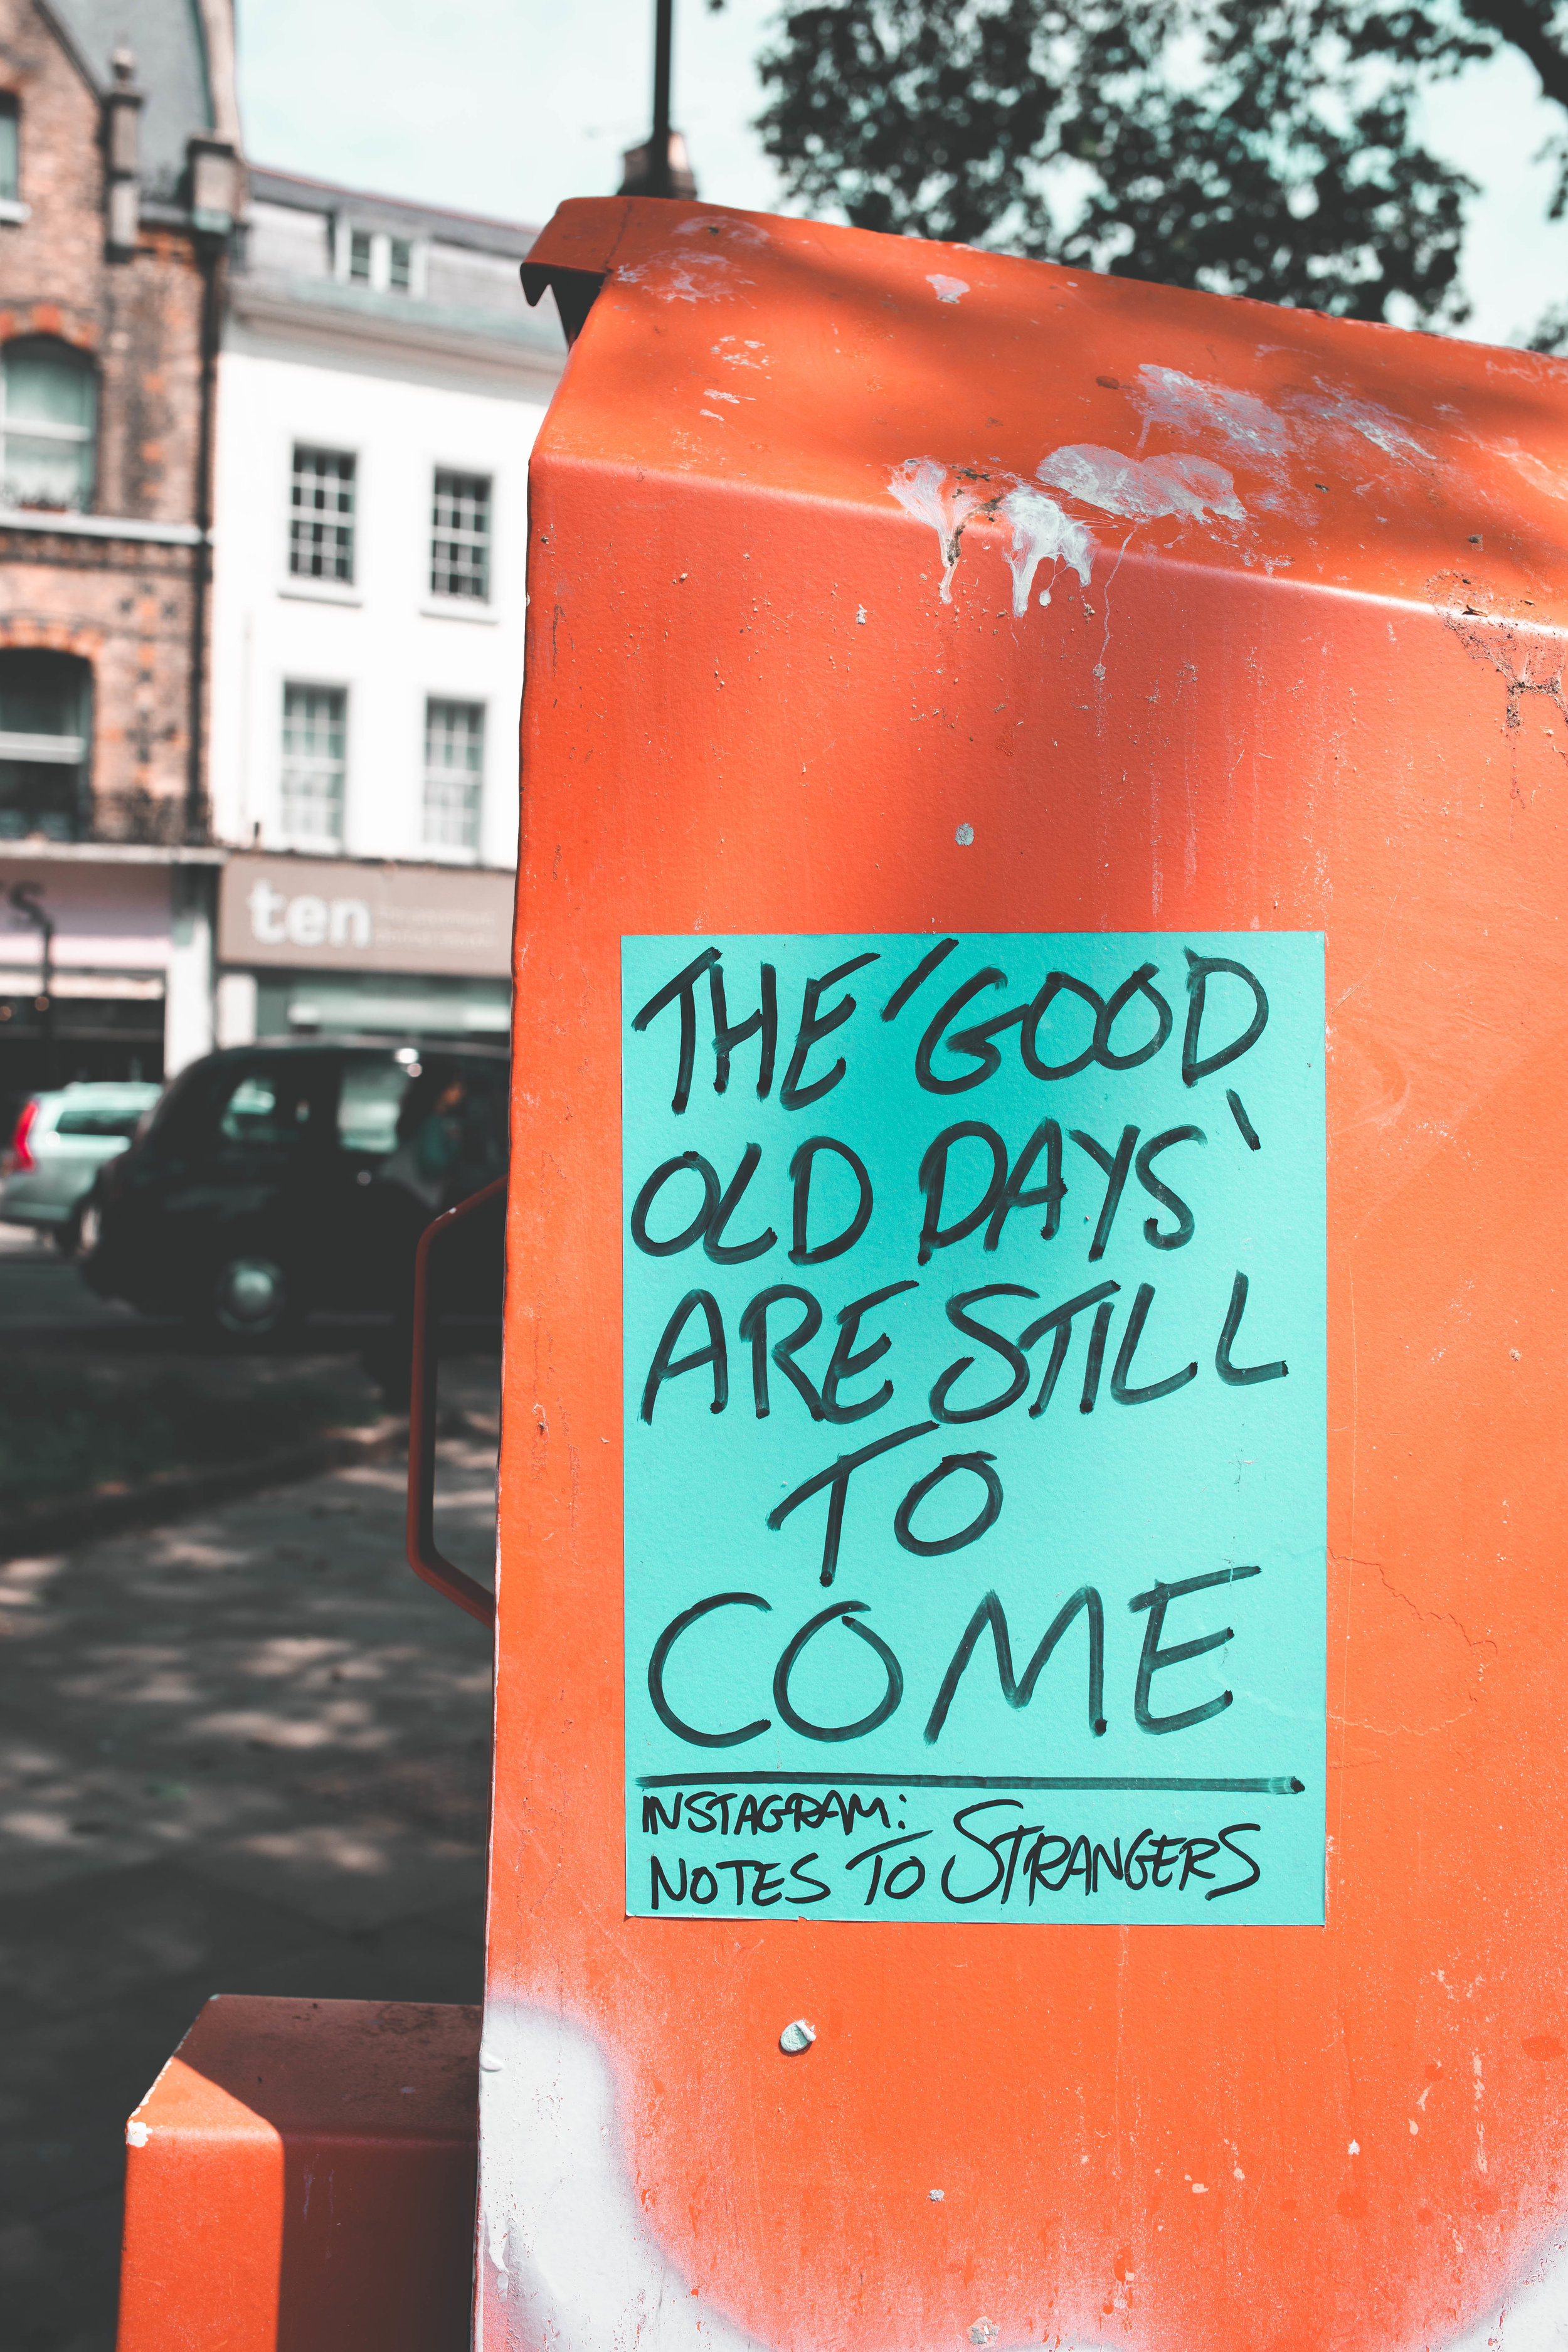 THE 'GOOD
OLD DAYS'
ARE STILL
TO
COME
INSTAGRAM:
NOTES TO STRANGERS
ten